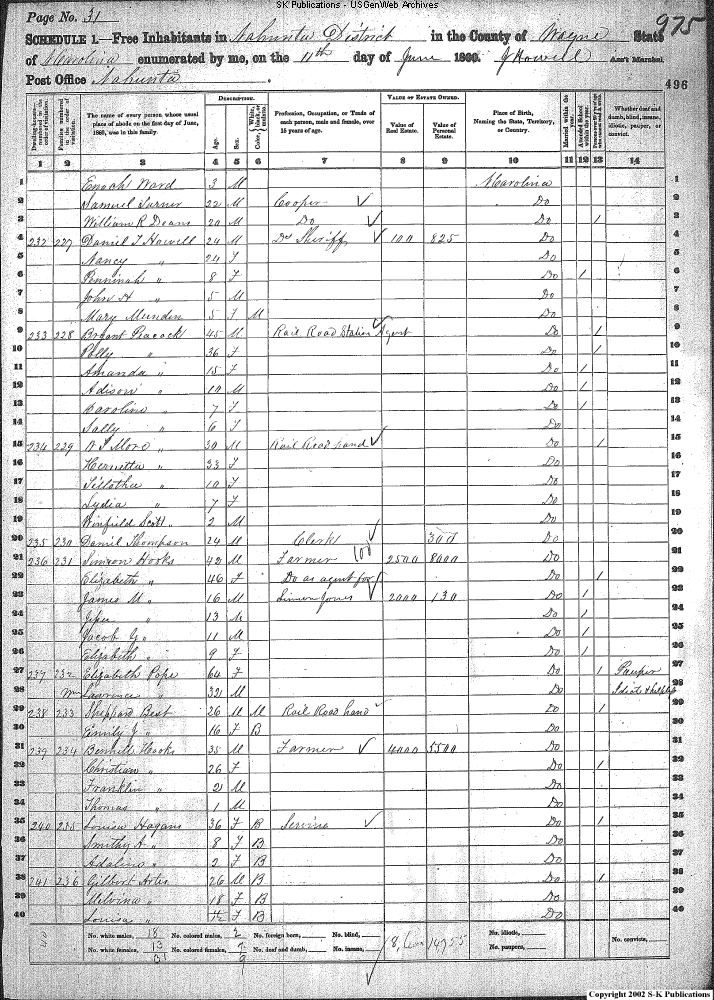 SK Publications - USGenWeb Archives
Page No. 31
975
SCHEDULE 1.—Free Inhabitants in Nahunta District in the County of Wayne State
of N Carolina enumerated by me, on the 11th day of June 1860. J Howell Ass't Marshal.
Post Office Nahunta.
496
Dwelling-houses— numbered in the order of visitation.
Families numbered in the order of visitation.
The name of every person whose usual place of abode on the first day of June, 1860, was in this family.
DESCRIPTION.
Age.
Sex.
Color, White, black, or mulatto.
Profession, Occupation, or Trade of each person, male and female, over 15 years of age.
VALUE OF ESTATE OWNED.
Value of Real Estate.
Value of Personal Estate.
Place of Birth, Naming the State, Territory, or Country.
Married within the year.
Attended School within the year.
Whether deaf and dumb, blind, insane, idiotic, pauper, or convict.
1 2 3 4 5 6 7 8 9 10 11 12 13 14
1 Enoch Ward 3 M N Carolina 1
2 Samuel Turner 22 M Cooper Do 2
3 William R Deans 20 M Do Do 1 3
4 232 227 Daniel T Howell 24 M Do Sheriff 100 825 Do 4
5 Nancy " 24 F Do 5
6 Penninah " 8 F Do 1 6
7 John H " 5 M Do 7
8 Mary Munden 5 F M Do 8
9 233 228 Bryant Peacock 45 M Rail Road Station Agent Do 1 9
10 Polly " 36 F Do 1 10
11 Amanda " 15 F Do 1 11
12 Adison " 10 M Do 1 12
13 Caroline " 7 F Do 1 13
14 Sally " 6 F Do 14
15 234 229 Moore " 30 M Rail Road hand Do 1 15
16 Hernetta " 33 F Do 16
17 " 10 F Do 17
18 Lydia " 7 F Do 18
19 Winfield Scott " 2 M Do 19
20 235 230 Daniel Thompson 24 M Clerk 300 Do 20
21 236 231 Simeon Hooks 42 M Farmer 100 2500 8000 Do 21
22 Elizabeth " 46 F Do as agent for Do 1 22
23 James M " 16 M Jones 2000 130 Do 1 23
24 " 13 M Do 1 24
25 Jacob Y " 11 M Do 1 25
26 Elizabeth " 9 F Do 1 26
27 237 232 Elizabeth Pope 64 F Do 1 Pauper 27
28 Lawrence " 32 M Do Idiotic & helpless 28
29 238 233 Sheppard Best 26 M M Rail Road hand Do 1 29
30 Emily J " 16 F B Do 30
31 239 234 Hooks 35 M Farmer 4000 5500 Do 31
32 Christian " 26 F Do 1 32
33 Franklin " 2 M Do 33
34 Thomas " 1 M Do 34
35 240 235 Louisa Hagans 36 F B Serving Do 1 35
36 Smithy A " 8 F B Do 36
37 Adaline " 2 F B Do 37
38 241 236 Gilbert Artis 26 M B Do 1 38
39 Melvina " 18 F B Do 39
40 Louisa " F B Do 40
No. white males, 18 No. colored males, 2 No. foreign born, No. blind, No. idiotic, No. convicts,
No. white females, 13 No. colored females, 7 No. deaf and dumb, No. insane, 14,755 No. paupers,
31 9
Copyright 2002 S-K Publications